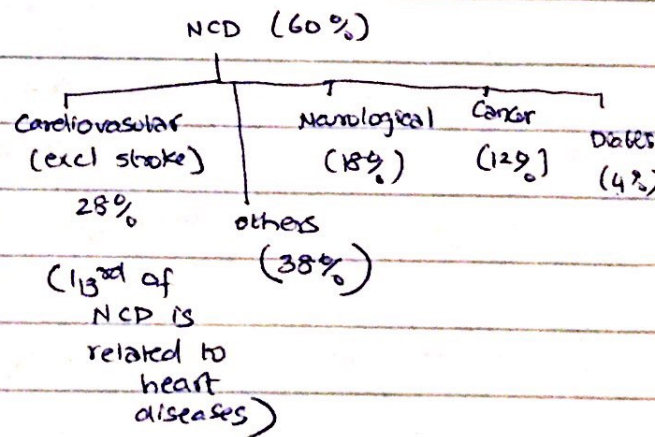 NCD (60%)
Cardiovasular
(excl stroke)
28%
(1/3rd of
NCD is
related to
heart
diseases)
others
(38%)
Nurological
(18%)
Cancer
(12%)
(4%)